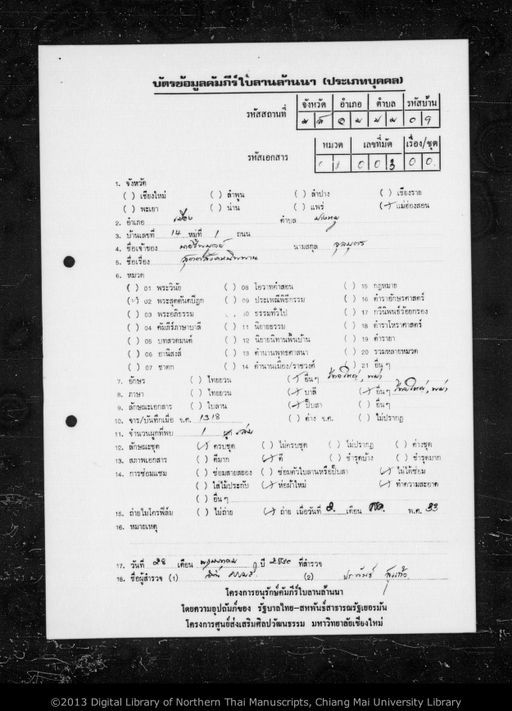 บัตรข้อมูลคัมภีร์ใบลานล้านนา (ประเภทบุคคล)
รหัสสถานที่ จังหวัด อำเภอ ตำบล รหัสบ้าน
0 9
รหัสเอกสาร หมวด เลขที่มัด เรื่อง/ชุด
0 0 3 0 0
1. จังหวัด
( ) เชียงใหม่ ( ) ลำพูน ( ) ลำปาง ( ) เชียงราย
( ) พะเยา ( ) น่าน ( ) แพร่ (✓) แม่ฮ่องสอน
2. อำเภอ เมือง ตำบล
3. บ้านเลขที่ 14 หมู่ที่ 1 ถนน
4. ชื่อเจ้าของ นามสกุล
5. ชื่อเรื่อง
6. หมวด
( ) 01 พระวินัย ( ) 08 โอวาทคำสอน ( ) 15 กฎหมาย
(✓) 02 พระสุตตันตปิฎก ( ) 09 ประเพณีพิธีกรรม ( ) 16 ตำราอักษรศาสตร์
( ) 03 พระอภิธรรม ( ) 10 ธรรมทั่วไป ( ) 17 กวีนิพนธ์ร้อยกรอง
( ) 04 คัมภีร์ภาษาบาลี ( ) 11 นิยายธรรม ( ) 18 ตำราโหราศาสตร์
( ) 05 บทสวดมนต์ ( ) 12 นิยายนิทานพื้นบ้าน ( ) 19 ตำรายา
( ) 06 อานิสงส์ ( ) 13 ตำนานพุทธศาสนา ( ) 20 รวมหลายหมวด
( ) 07 ชาดก ( ) 14 ตำนานเมือง/ราชวงศ์ ( ) 21 อื่น ๆ
7. อักษร ( ) ไทยยวน (✓) อื่นๆ ไทยใหญ่, พม่า
8. ภาษา ( ) ไทยยวน (✓) บาลี (✓) อื่นๆ ไทยใหญ่, พม่า
9. ลักษณะเอกสาร ( ) ใบลาน (✓) ปั๊บสา ( ) อื่นๆ
10. จาร/บันทึกเมื่อ จ.ศ. 1318 ( ) ต่าง จ.ศ. ( ) ไม่ปรากฏ
11. จำนวนผูกที่พบ 1
12. ลักษณะชุด (✓) ครบชุด ( ) ไม่ครบชุด ( ) ไม่ปรากฏ ( ) ต่างชุด
13. สภาพเอกสาร ( ) ดีมาก (✓) ดี ( ) ชำรุดบ้าง ( ) ชำรุดมาก
14. การซ่อมแซม ( ) ซ่อมสายสยอง ( ) ซ่อมตัวใบลานหรือปั๊บสา (✓) ไม่ได้ซ่อม
( ) ใส่ไม้ประกับ (✓) ห่อผ้าใหม่ (✓) ทำความสะอาด
( ) อื่น ๆ
15. ถ่ายไมโครฟิล์ม ( ) ไม่ถ่าย (✓) ถ่าย เมื่อวันที่ เดือน พ.ศ. 33
16. หมายเหตุ
17. วันที่ 28 เดือน พฤษภาคม ปี 2530 ที่สำรวจ
18. ชื่อผู้สำรวจ (1) (2)
โครงการอนุรักษ์คัมภีร์ใบลานล้านนา
โดยความอุปถัมภ์ของ รัฐบาลไทย-สหพันธ์สาธารณรัฐเยอรมัน
โครงการศูนย์ส่งเสริมศิลปวัฒนธรรม มหาวิทยาลัยเชียงใหม่
©2013 Digital Library of Northern Thai Manuscripts, Chiang Mai University Library